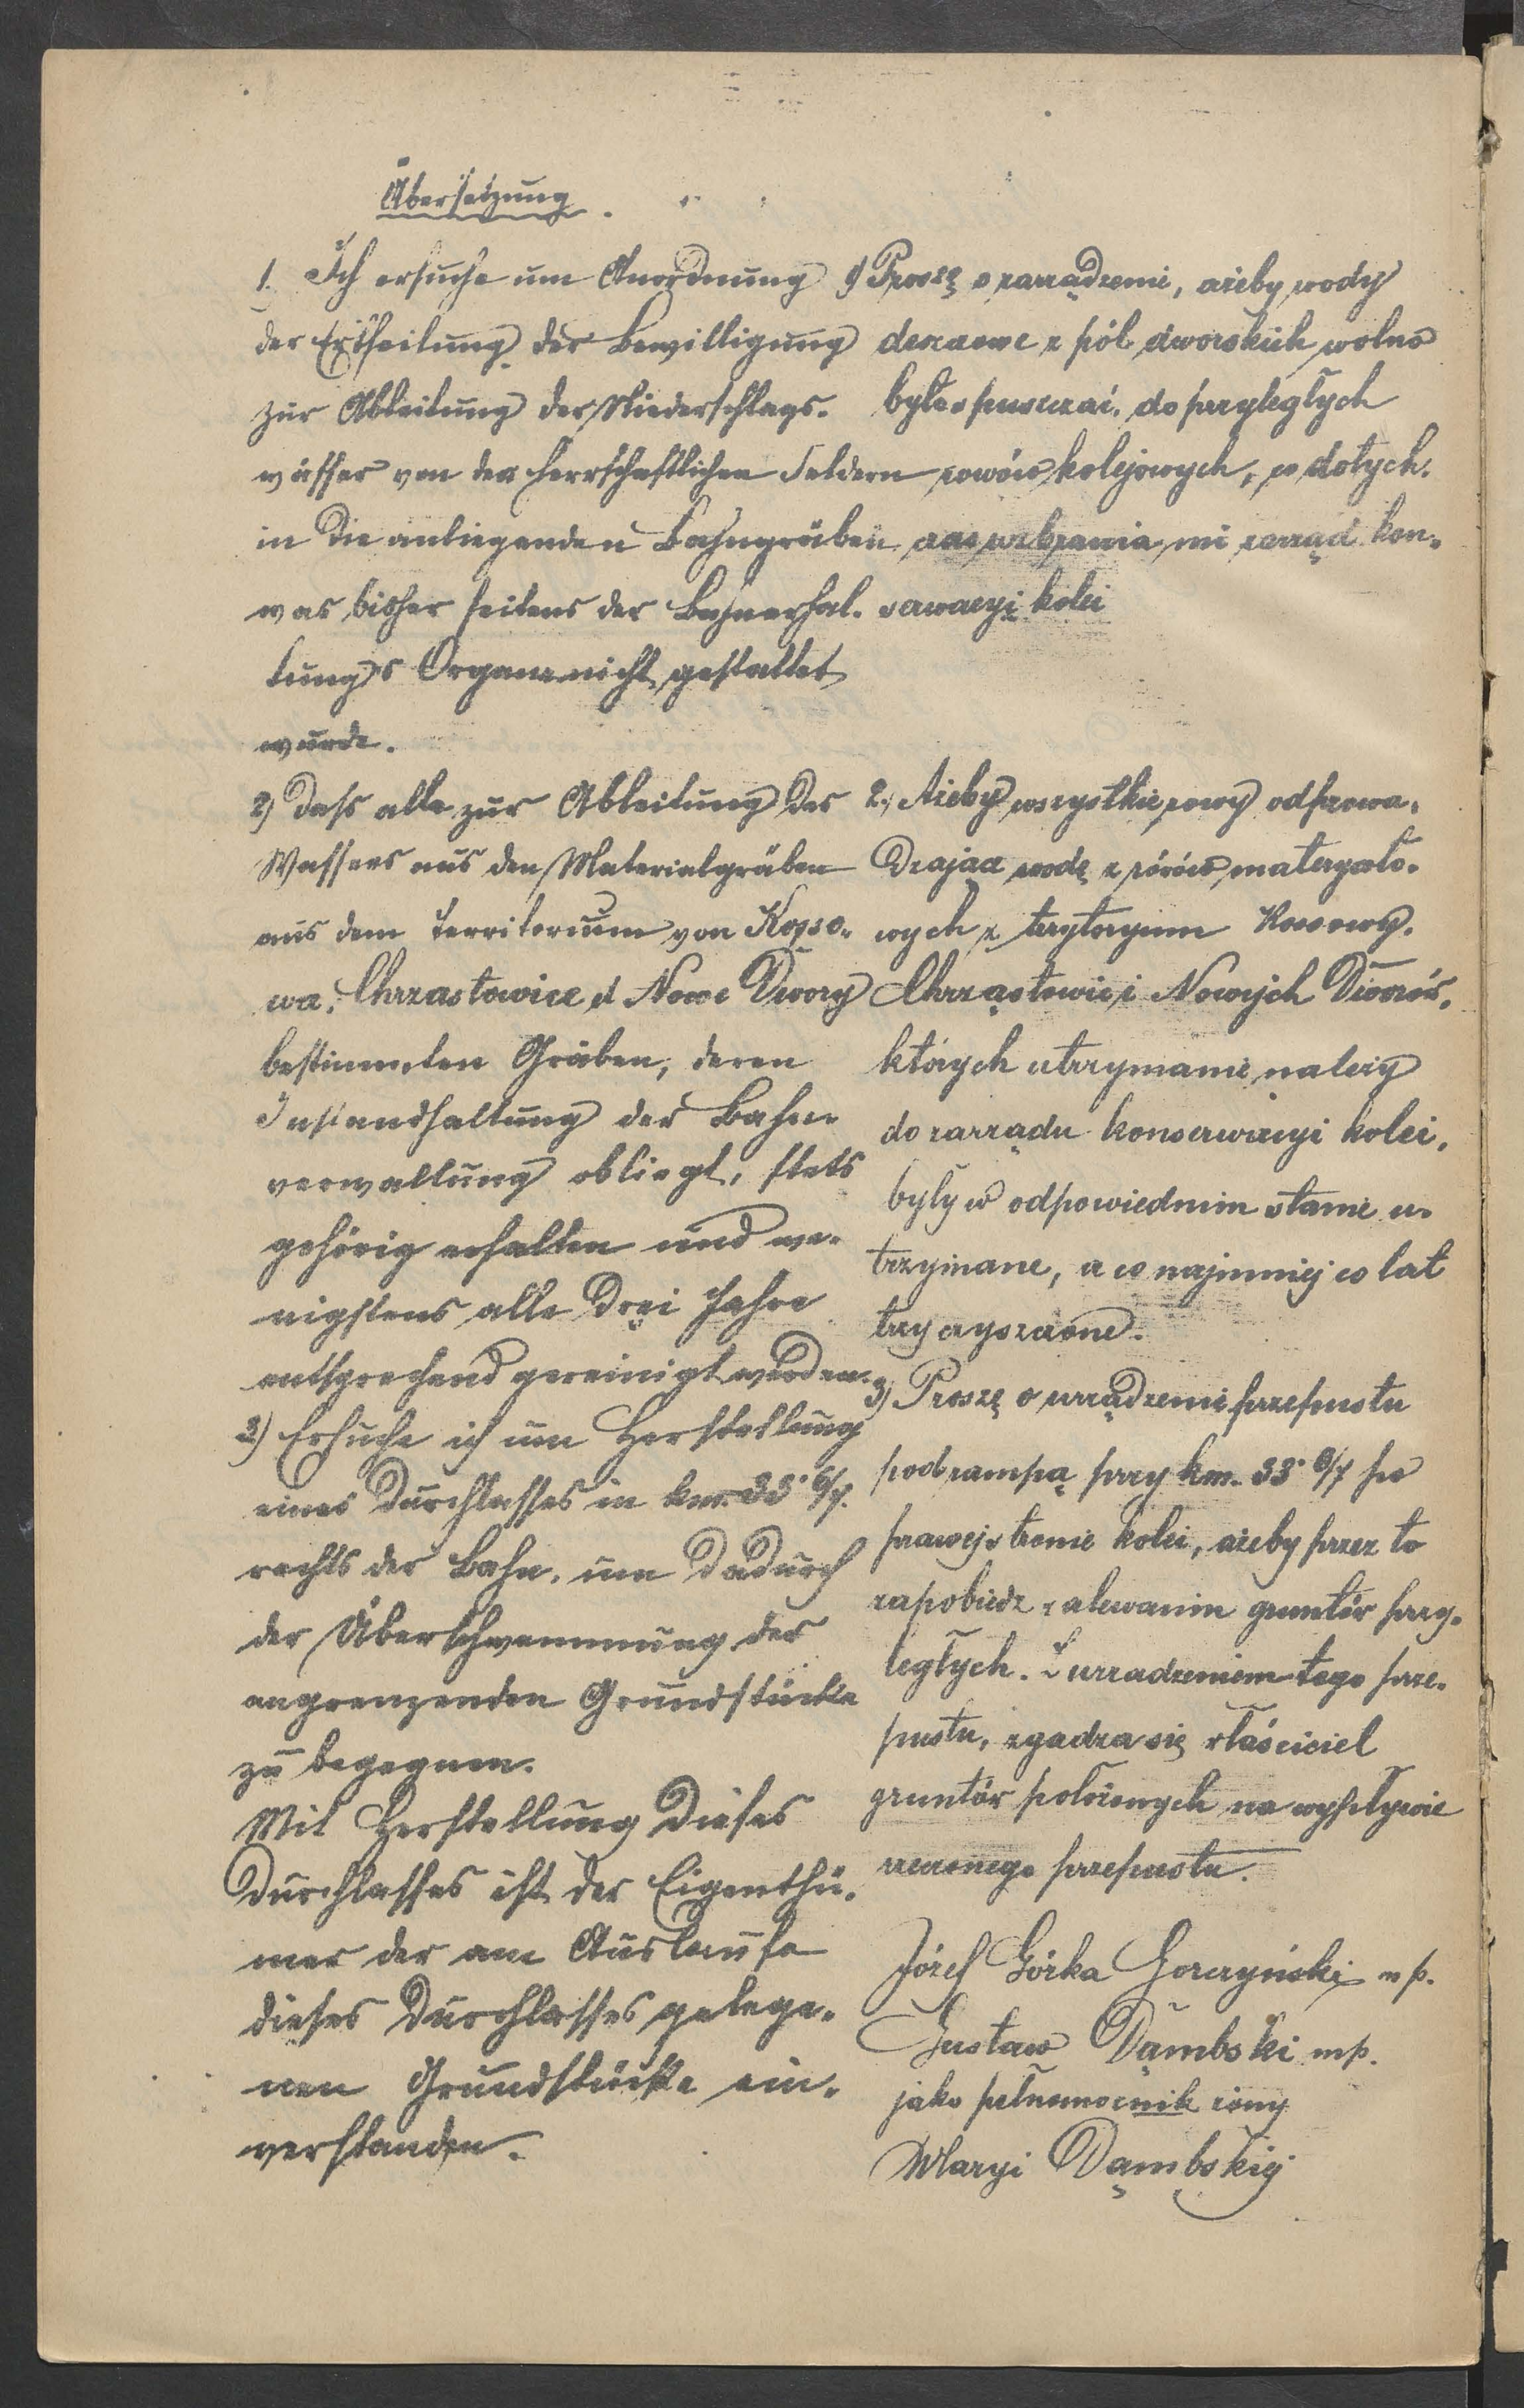 Übersetzung.
1. Ich ersuche um Anordnung
der Ertheilung der Bewilligung
zur Ableitung der Niederschlags-
wässer von den herrschaftlichen Feldern
in die anliegenden Bahngräben
was bisher seitens der Bahnerhal-
tungs Organe nicht gestattet
wurde.
2) Dass alle zur Ableitung des
Wassers aus den Materialgräben
aus dem Territorium von Kosso-
wa, Chrzastowice et Nowe Dwory
bestimmten Gräben, deren
Instandhaltung der Bahn-
verwaltung obliegt, stets
gehörig erhalten und we-
nigstens alle drei Jahre
entsprechend gereinigt werden.
3) Ersuche ich um Herstellung
eines Durchlasses in km. 33· 6/7.
rechts der Bahn, um dadurch
der Überschwemmung der
angrenzenden Grundstücke
zu begegnen.
Mit Herstellung dieses
Durchlasses ist der Eigenthü-
mer der am Auslaufe
dieses Durchlasses gelege-
nen Grundstücke ein-
verstanden.
1) Proszę o zarządzenie, ażeby wody
deszczowe z pól dworskich wolno
było spuszczać do przyległych
rowów kolejowych, co dotych-
czas wzbrania mi zarząd kon-
serwacyi kolei
2., Ażeby wszystkie rowy odprowa-
dzając wodę z rowów materyało-
wych z terytoryum Kossowy,
Chrząstowic i Nowych Dworów,
których utrzymanie należy
do zarządu konserwacyi kolei,
były w odpowiednim stanie u-
trzymane, a co najmniej co lat
trzy czyszczone.
3) Proszę o urządzenie przepustu
pod rampą przy km. 33· 6/7 po
prawej stronie kolei, ażeby przez to
zapobiedz zalewaniu gruntów przy-
ległych. Z urządzeniem tego prze-
pustu, zgadza się właściciel
gruntów położonych na wypływie
rzeczonego przepustu.
Józef Górka Gorczyński mp.
Gustaw Dąmbski mp.
jako pełnomocnik żony
Maryi Dąmbskiej